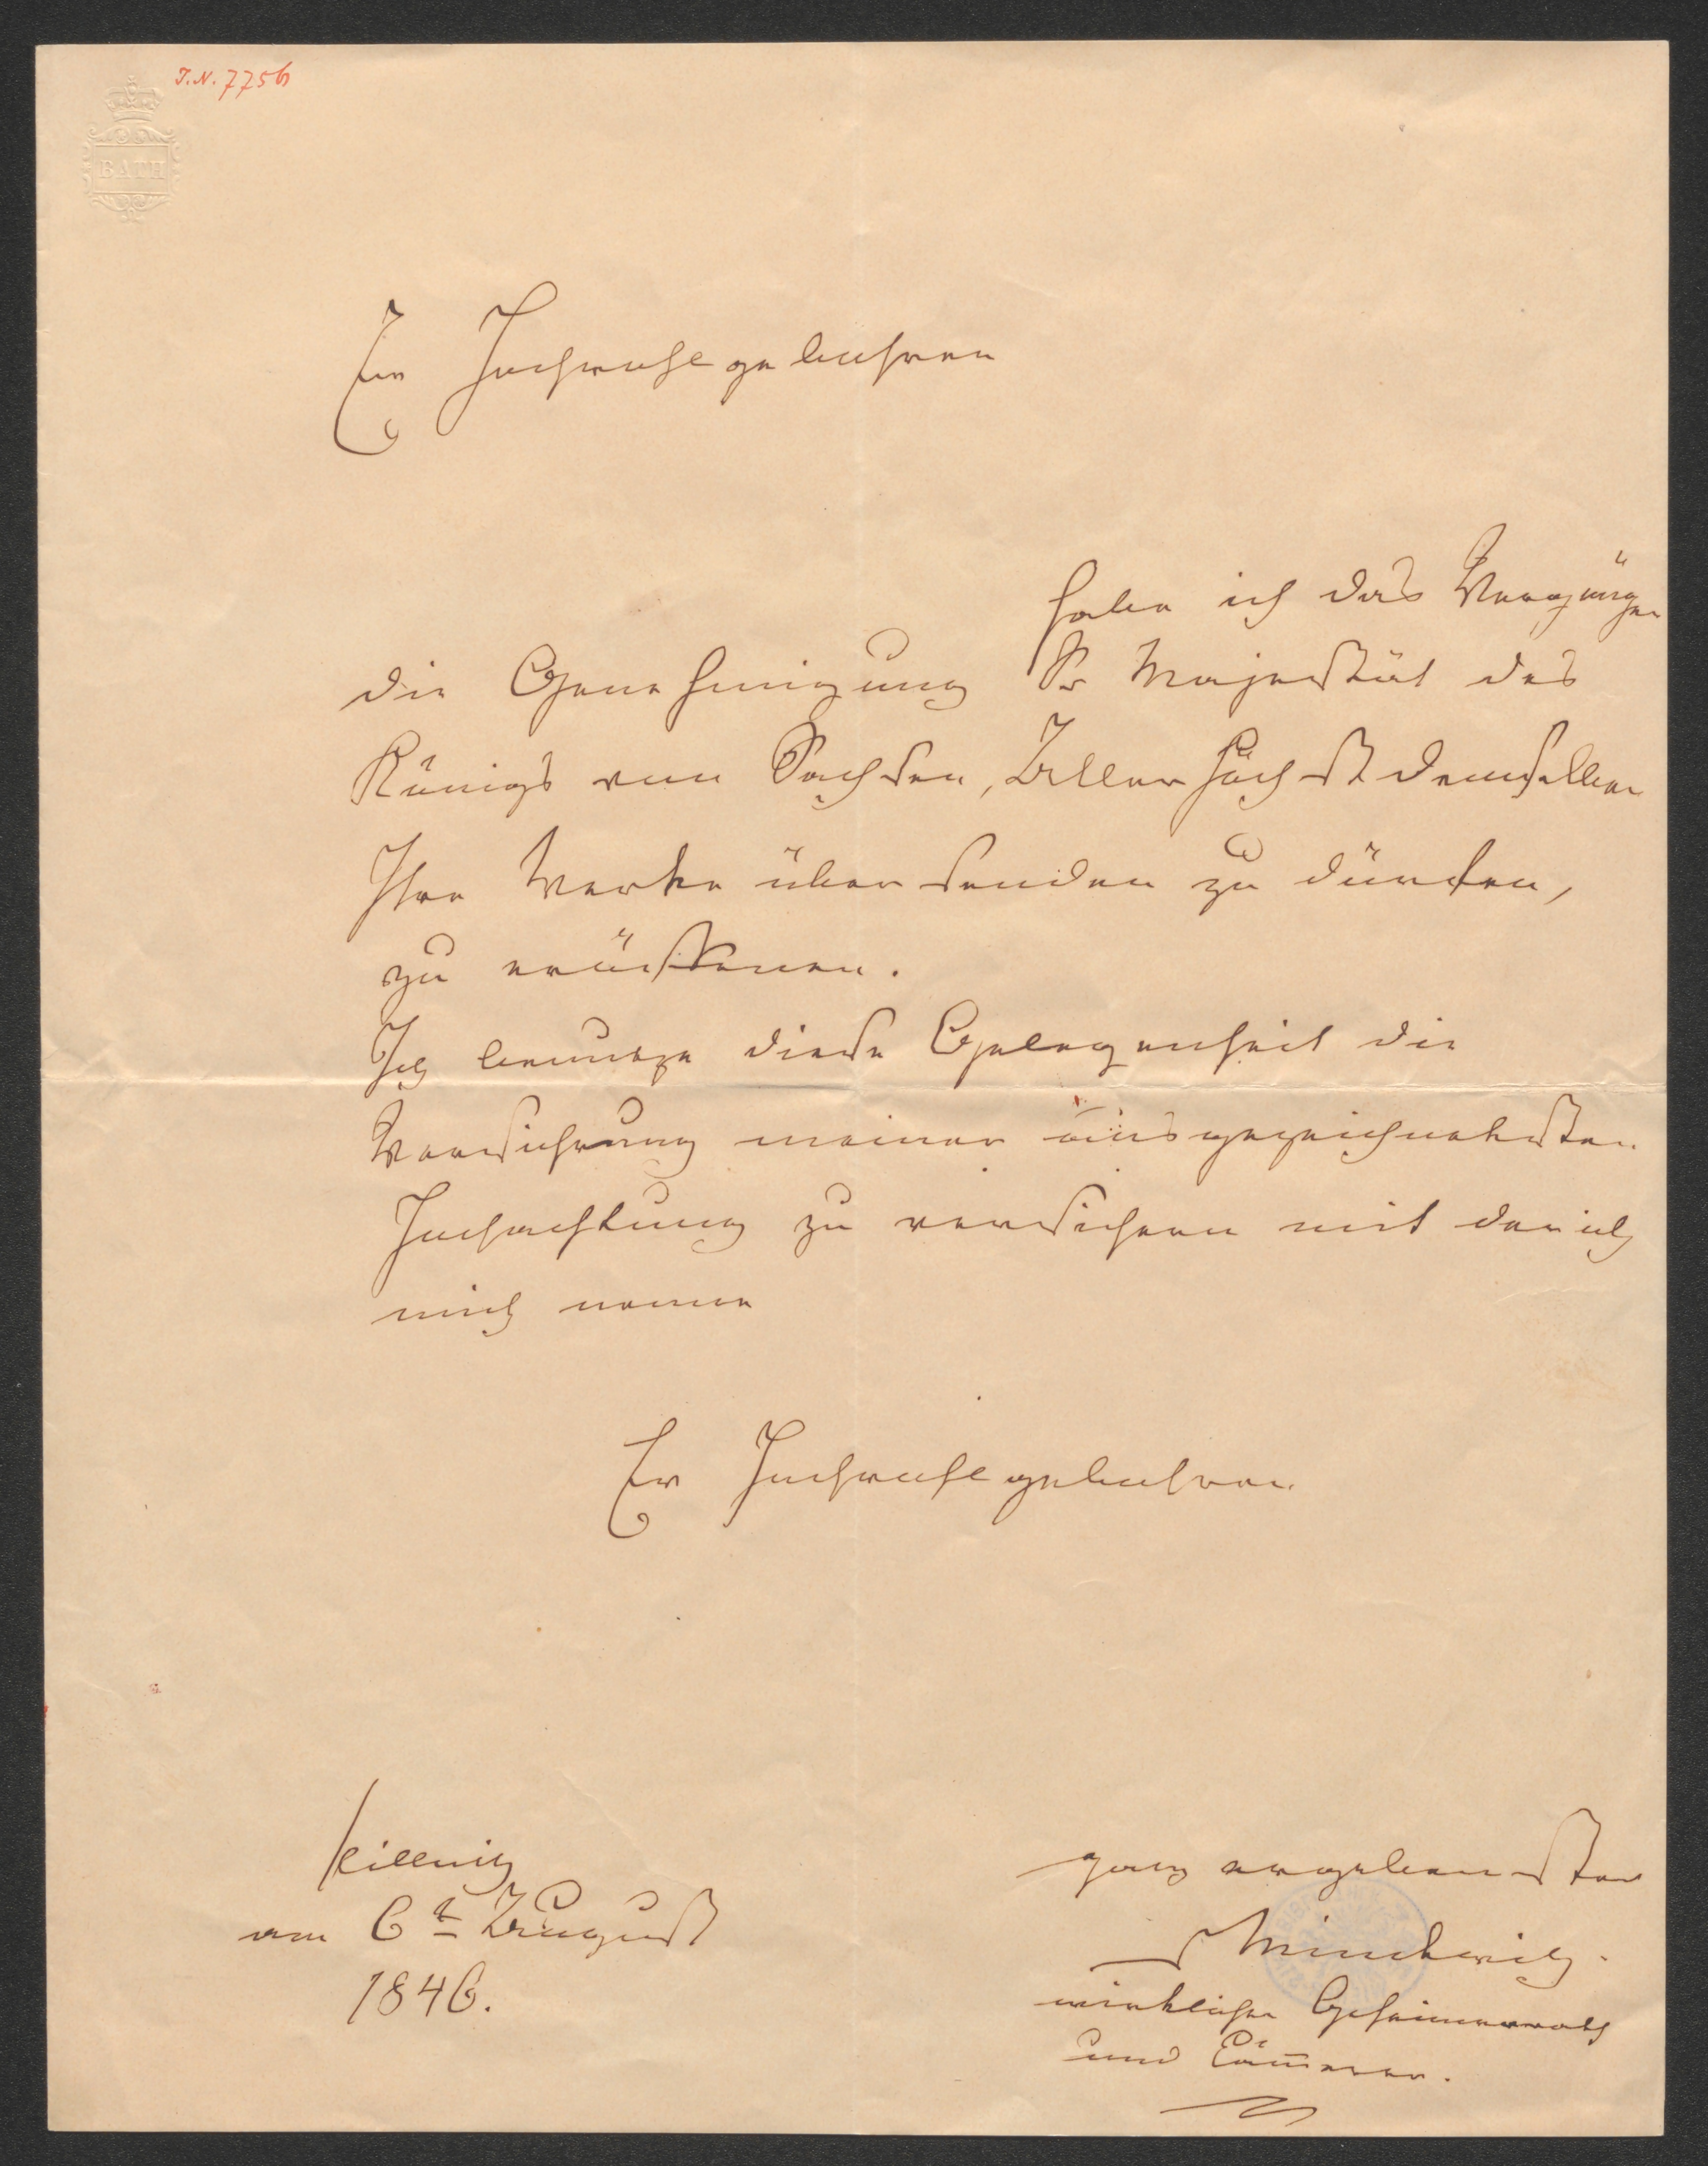 I.N. 7756
BATH
Ew Hochwohlgebohren
habe ich das Vergnügen
die Genehmigung Sr Majestät des
Königs von Sachsen, Allerhöchstdemselben
Ihre Werke übersenden zu dürfen,
zu eröffnen.
Ich benutze diese Gelegenheit die
Versichrung meiner ausgezeichnetesten
Hochachtung zu versichern mit der ich
mich nenne
Ew Hochwohlgebohren
Pillnitz
am 6t August
1846.
ganz ergebenster
Minckwitz.
wirklicher Geheimerrath
und Cam̄erer.